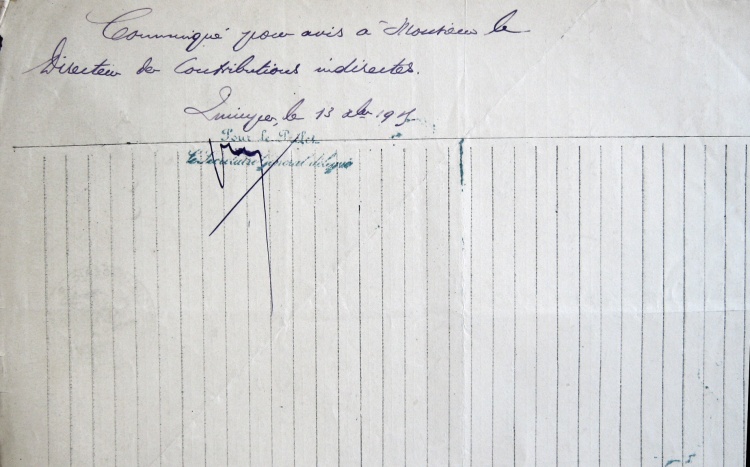 Communiqué pour avis à Monsieur le
Directeur des Contributions indirectes.
Quimper, le 13 xbre 19
Pour le Préfet
Le Secrétaire Général délégué